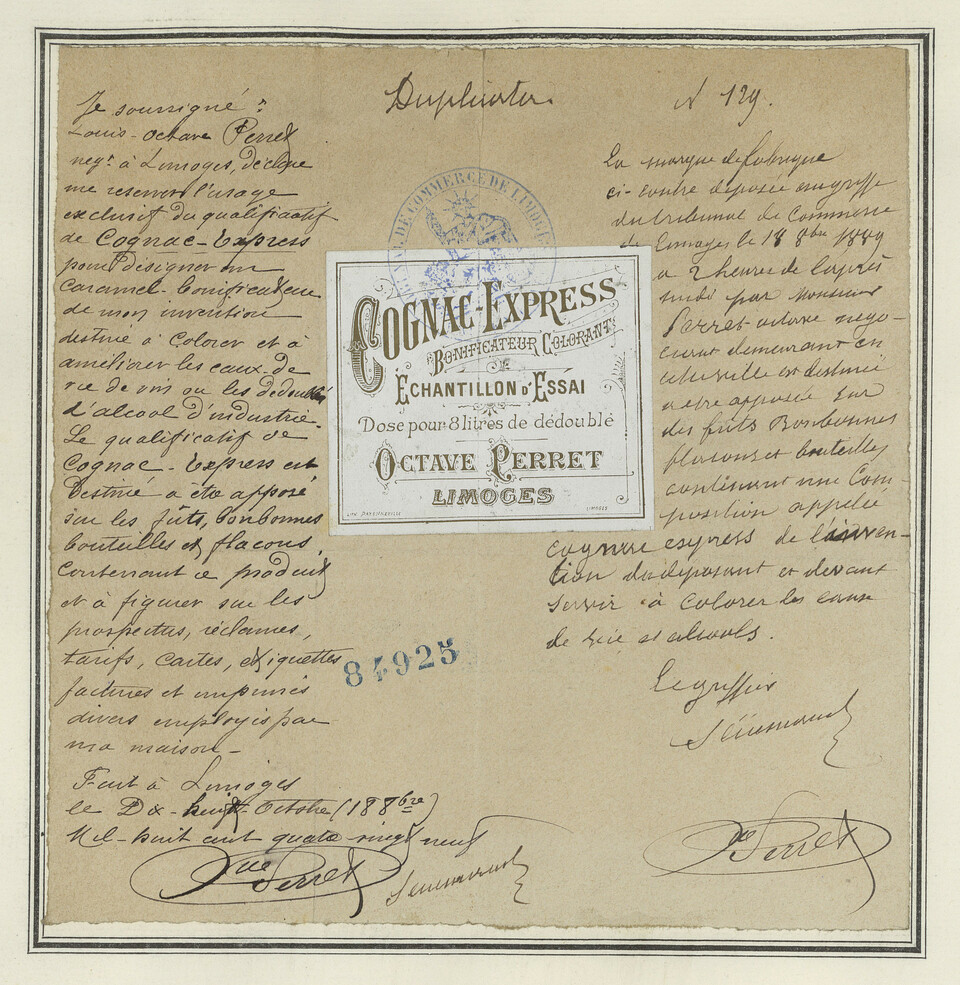 Duplicata.
N 129.
Je soussigné
Louis-Octave Perret
negt à Limoges, déclare
me reserver l'usage
exclusif du qualificatif
de Cognac-Express
pour désigner un
Caramel-bonificateur
de mon invention
destiné à colorer et à
améliorer les eaux-de-
vie de vin ou les dédoublés
d'alcool d'industrie.
Le qualificatif de
Cognac-Express est
Destiné à être apposé
sur les fûts, bonbonnes
bouteilles et flacons,
contenant ce produit
et à figurer sur les
prospectus, réclames,
tarifs, cartes, etiquettes
factures et imprimés
divers employés par
ma maison -
Fait à Limoges
le Dix-huit Octobre (18 8bre)
Mil-huit cent quatre vingt neuf
Ove Perret
TRIBUNAL DE COMMERCE DE LIMOGES
COGNAC-EXPRESS
BONIFICATEUR COLORANT
ÉCHANTILLON D'ESSAI
Dose pour 8 litres de dédoublé
OCTAVE PERRET
LIMOGES
LIMOGES
84925
La marque de fabrique
ci-contre déposée au greffe
du tribunal de Commerce
de Limoges le 18 8bre 1889
a 2 heures de l'après
midi par Monsieur
Perret octave nego-
ciant demeurant en
cette ville est destinée
a etre apposée sur
des futs Bonbonnes
flacons et bouteilles
contenant une Com-
position appelée
cognac express de l'inven-
tion du deposant et devant
servir à colorer les eaux
de vie et alcools.
Le greffier
Ove Perret